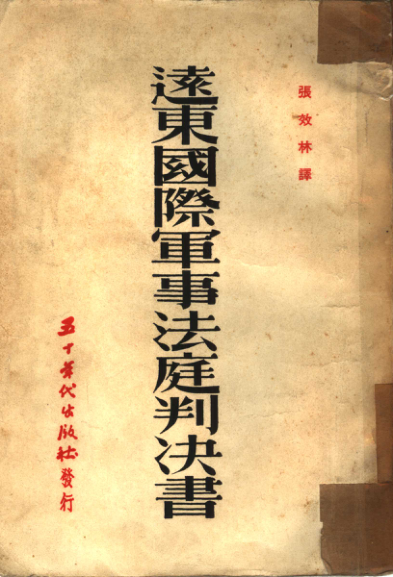 張效林譯
遠東國際軍事法庭判决書
五十年代出版社發行